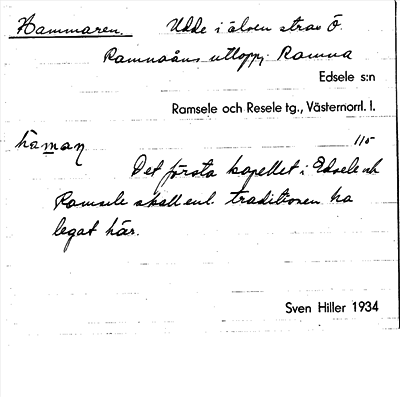 Hammaren. Udde i älven strax Ö.
Ramnaåns utlopp; Ramna
Edsele s:n
Ramsele och Resele tg., Västernorrl. l.
hàman 115
Det första kapellet i Edsele och
Ramsele skall enl. traditionen ha
legat här.
Sven Hiller 1934